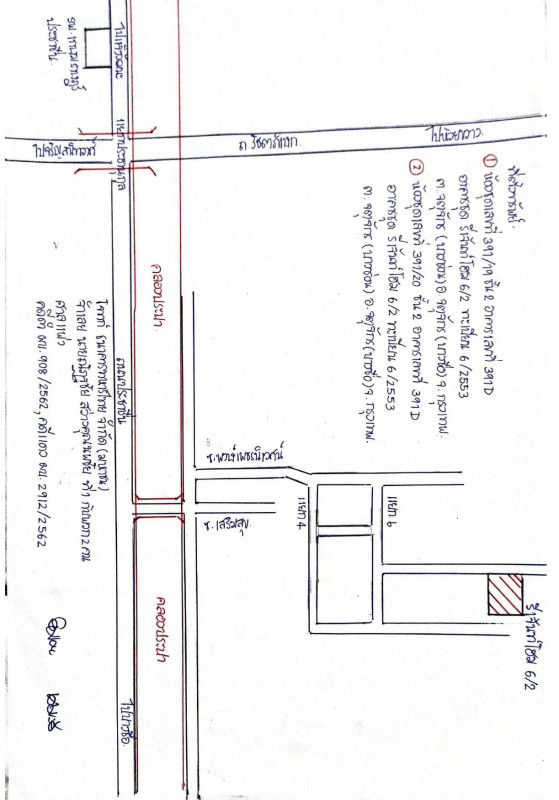 ที่ตั้งทรัพย์.
① ห้องชุดเลขที่ 391/19 ชั้น 2 อาคารเลขที่ 391 D
อาคารชุด รีเจ้นท์โฮม 6/2 ทะเบียน 6/2553
ต. จตุจักร (บางซื่อ) อ. จตุจักร (บางซื่อ) จ. กรุงเทพ.
② ห้องชุดเลขที่ 391/20 ชั้น 2 อาคารเลขที่ 391 D
อาคารชุด รีเจ้นท์โฮม 6/2 ทะเบียน 6/2553
ต. จตุจักร (บางซื่อ) อ. จตุจักร (บางซื่อ) จ. กรุงเทพ.
รีเจ้นท์โฮม 6/2
แยก 6
แยก 4
ไปห้วยขวาง.
ถ. รัชดาภิเษก.
ไปจรัญสนิทวงศ์
แยกประชานุกูล
ซ. พงษ์เพชรนิเวศน์
ซ. เสริมสุข.
คลองประปา
คลองประปา
รพ. เกษมราษฎร์
ประชาชื่น.
ไปแจ้งวัฒนะ
ถนนประชาชื่น
ไปบางซื่อ.
โจทก์ ธนาคารทหารไทย จำกัด (มหาชน)
จำเลย ที่ 1 กับพวก 2 คน
ศาลแพ่ง
คดีดำ ผบ. 908/2562, คดีแดง ผบ. 2912/2562